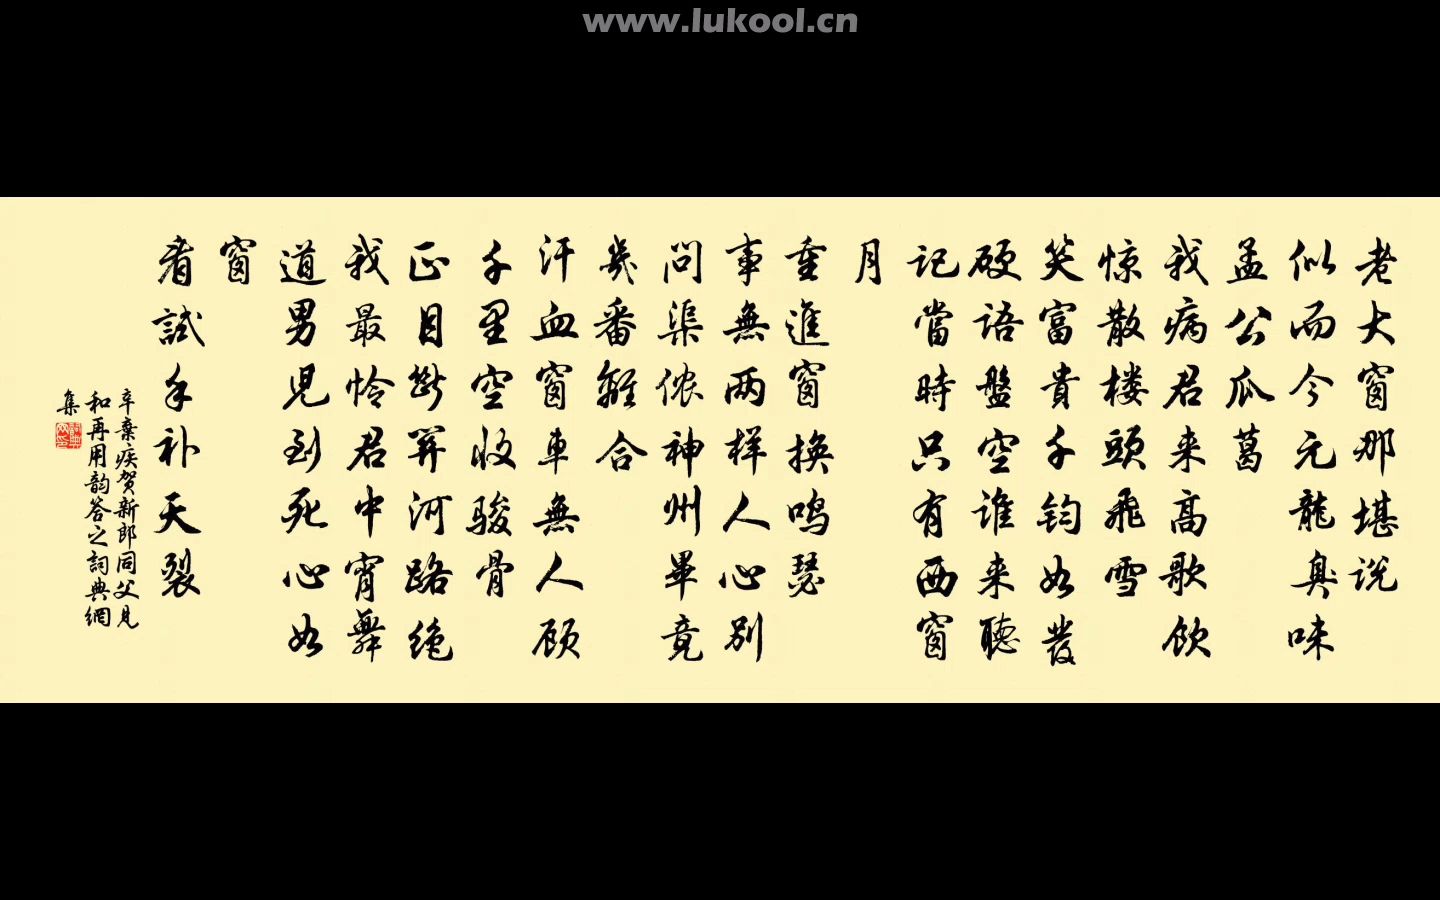 www.lukool.cn
老大窗那堪说
似而今元龍臭味
孟公瓜葛
我病君来高歌饮
惊散楼頭飛雪
笑富貴千钧如發
硬語盤空谁来聽
記當時只有西窗
月
重進窗换鸣瑟
事無两样人心别
問渠侬神州畢竟
幾番離合
汗血窗車無人顾
千里空收骏骨
正目断関河路绝
我最怜君中宵舞
道男児到死心如
窗
看試手补天裂
辛棄疾贺新郎同父見
和再用韵答之詞典網
集